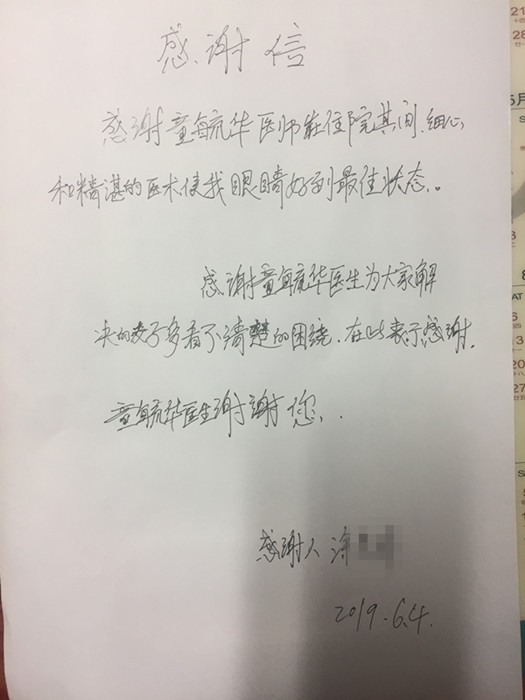 感谢信
感谢童毓华医师在住院其间、细心
和精湛的医术使我眼睛好到最佳状态。
感谢童毓华医生为大家解
决的好多看不清楚的困绕。在此表示感谢。
童毓华医生谢谢您。
感谢人 涂
2019.6.4.
21
28
5月
6
13
20
27